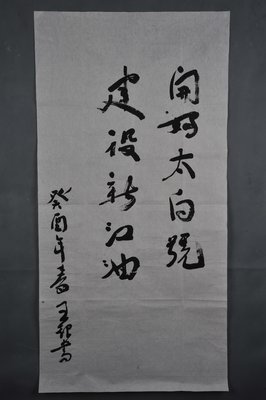 開好太白號
建设新江油
癸酉年春王书